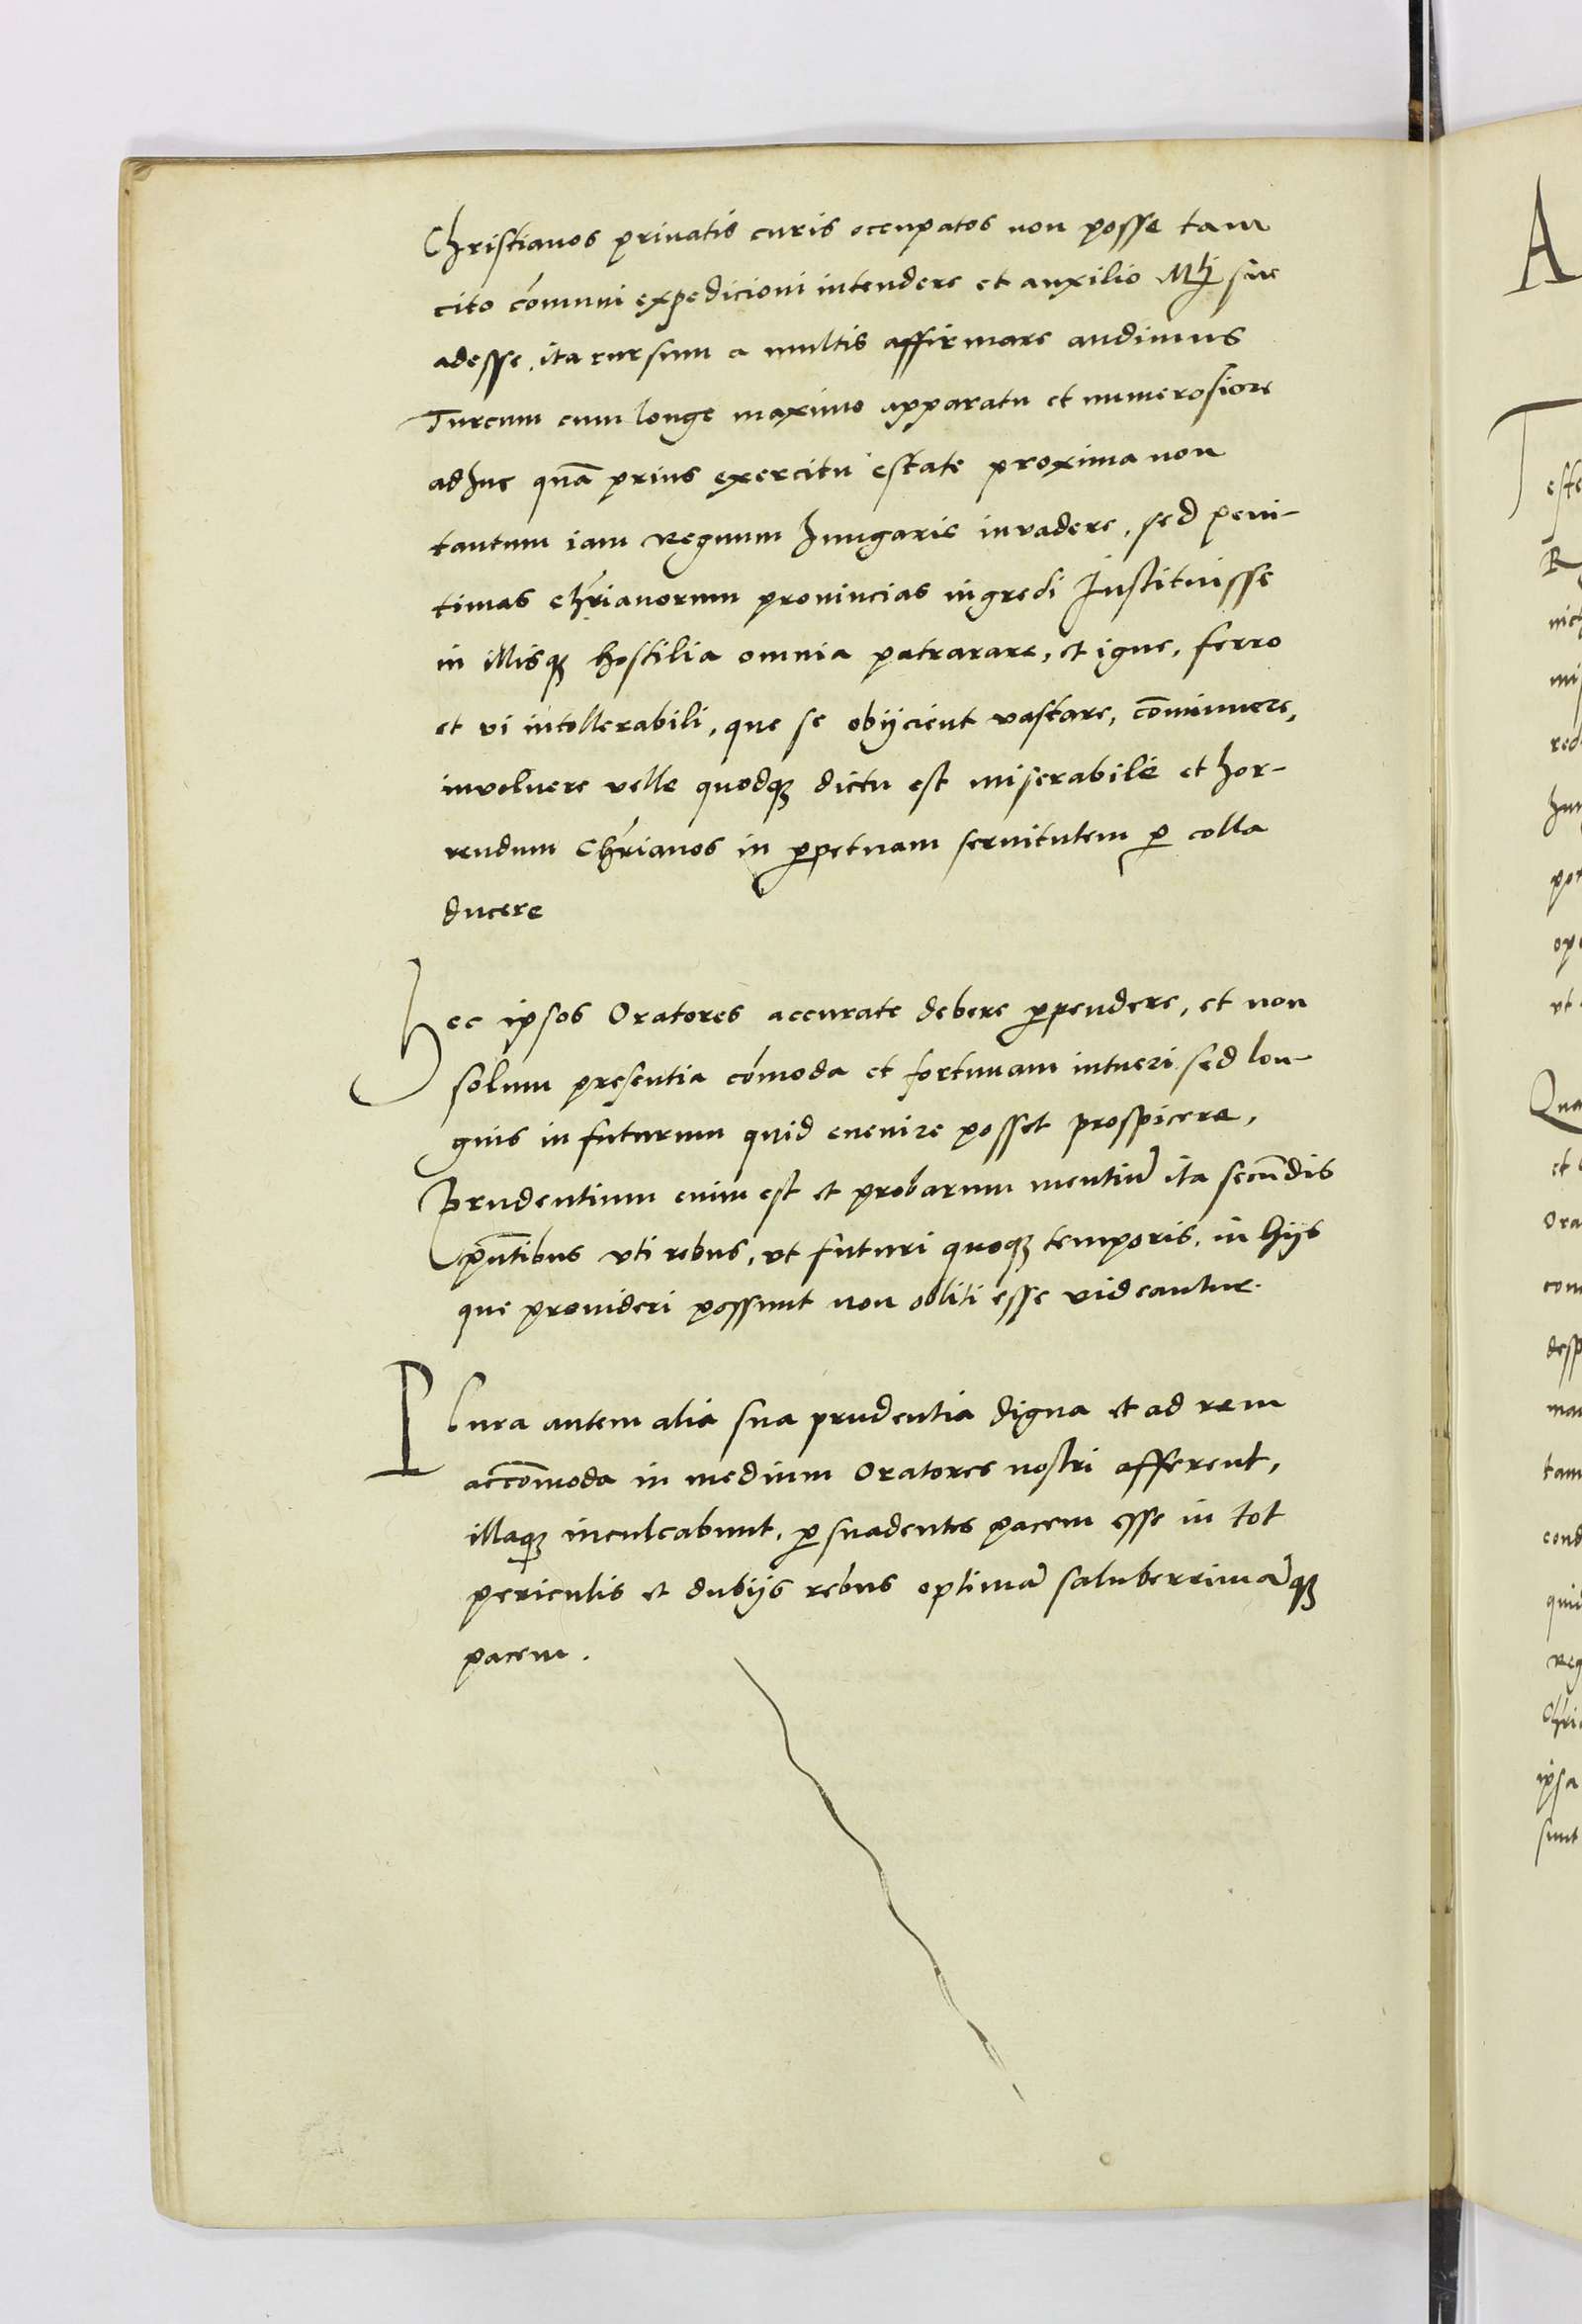 Christianos priuatis curis occupatos non posse tam
cito cōmuni expedicioni intendere et auxilio Mti sue
adesse, ita rursum a multis affirmare audimus
Turcum cum longe maximo apparatu et numerosiore
adhuc quā prius exercitu estate proxima non
tantum iam Regnum hungarie invadere, sed peni-
timas chr̄ianorum prouincias ingredi Instituisse
in illisqȝ hostilia omnia patrarare, et igne, ferro
et vi intollerabili, que se obijcient vastare, cōminuere,
involuere velle quodqȝ dictu est miserabile et hor-
rendum Chr̄ianos in ꝑpetuam seruitutem ꝑ colla
ducere
Hec ipsos Oratores accurate debere ꝑpendere, et non
solum presentia cōmoda et fortunam intueri sed lon-
gius in futurum quid euenire posset prospicere,
Prudentium enim est et probarum mentiū ita secūdis
pn̄tibus vti rebus, vt futuri quoqȝ temporis, in hijs
que prouideri possunt non obliti esse videantur.
Plura autem alia sua prudentia digna et ad rem
accōmoda in medium Oratores nostri afferent,
illaqȝ inculcabunt, ꝑsuadentes pacem esse in tot
periculis et dubijs rebus optimā saluberrimāqȝ
pacem.